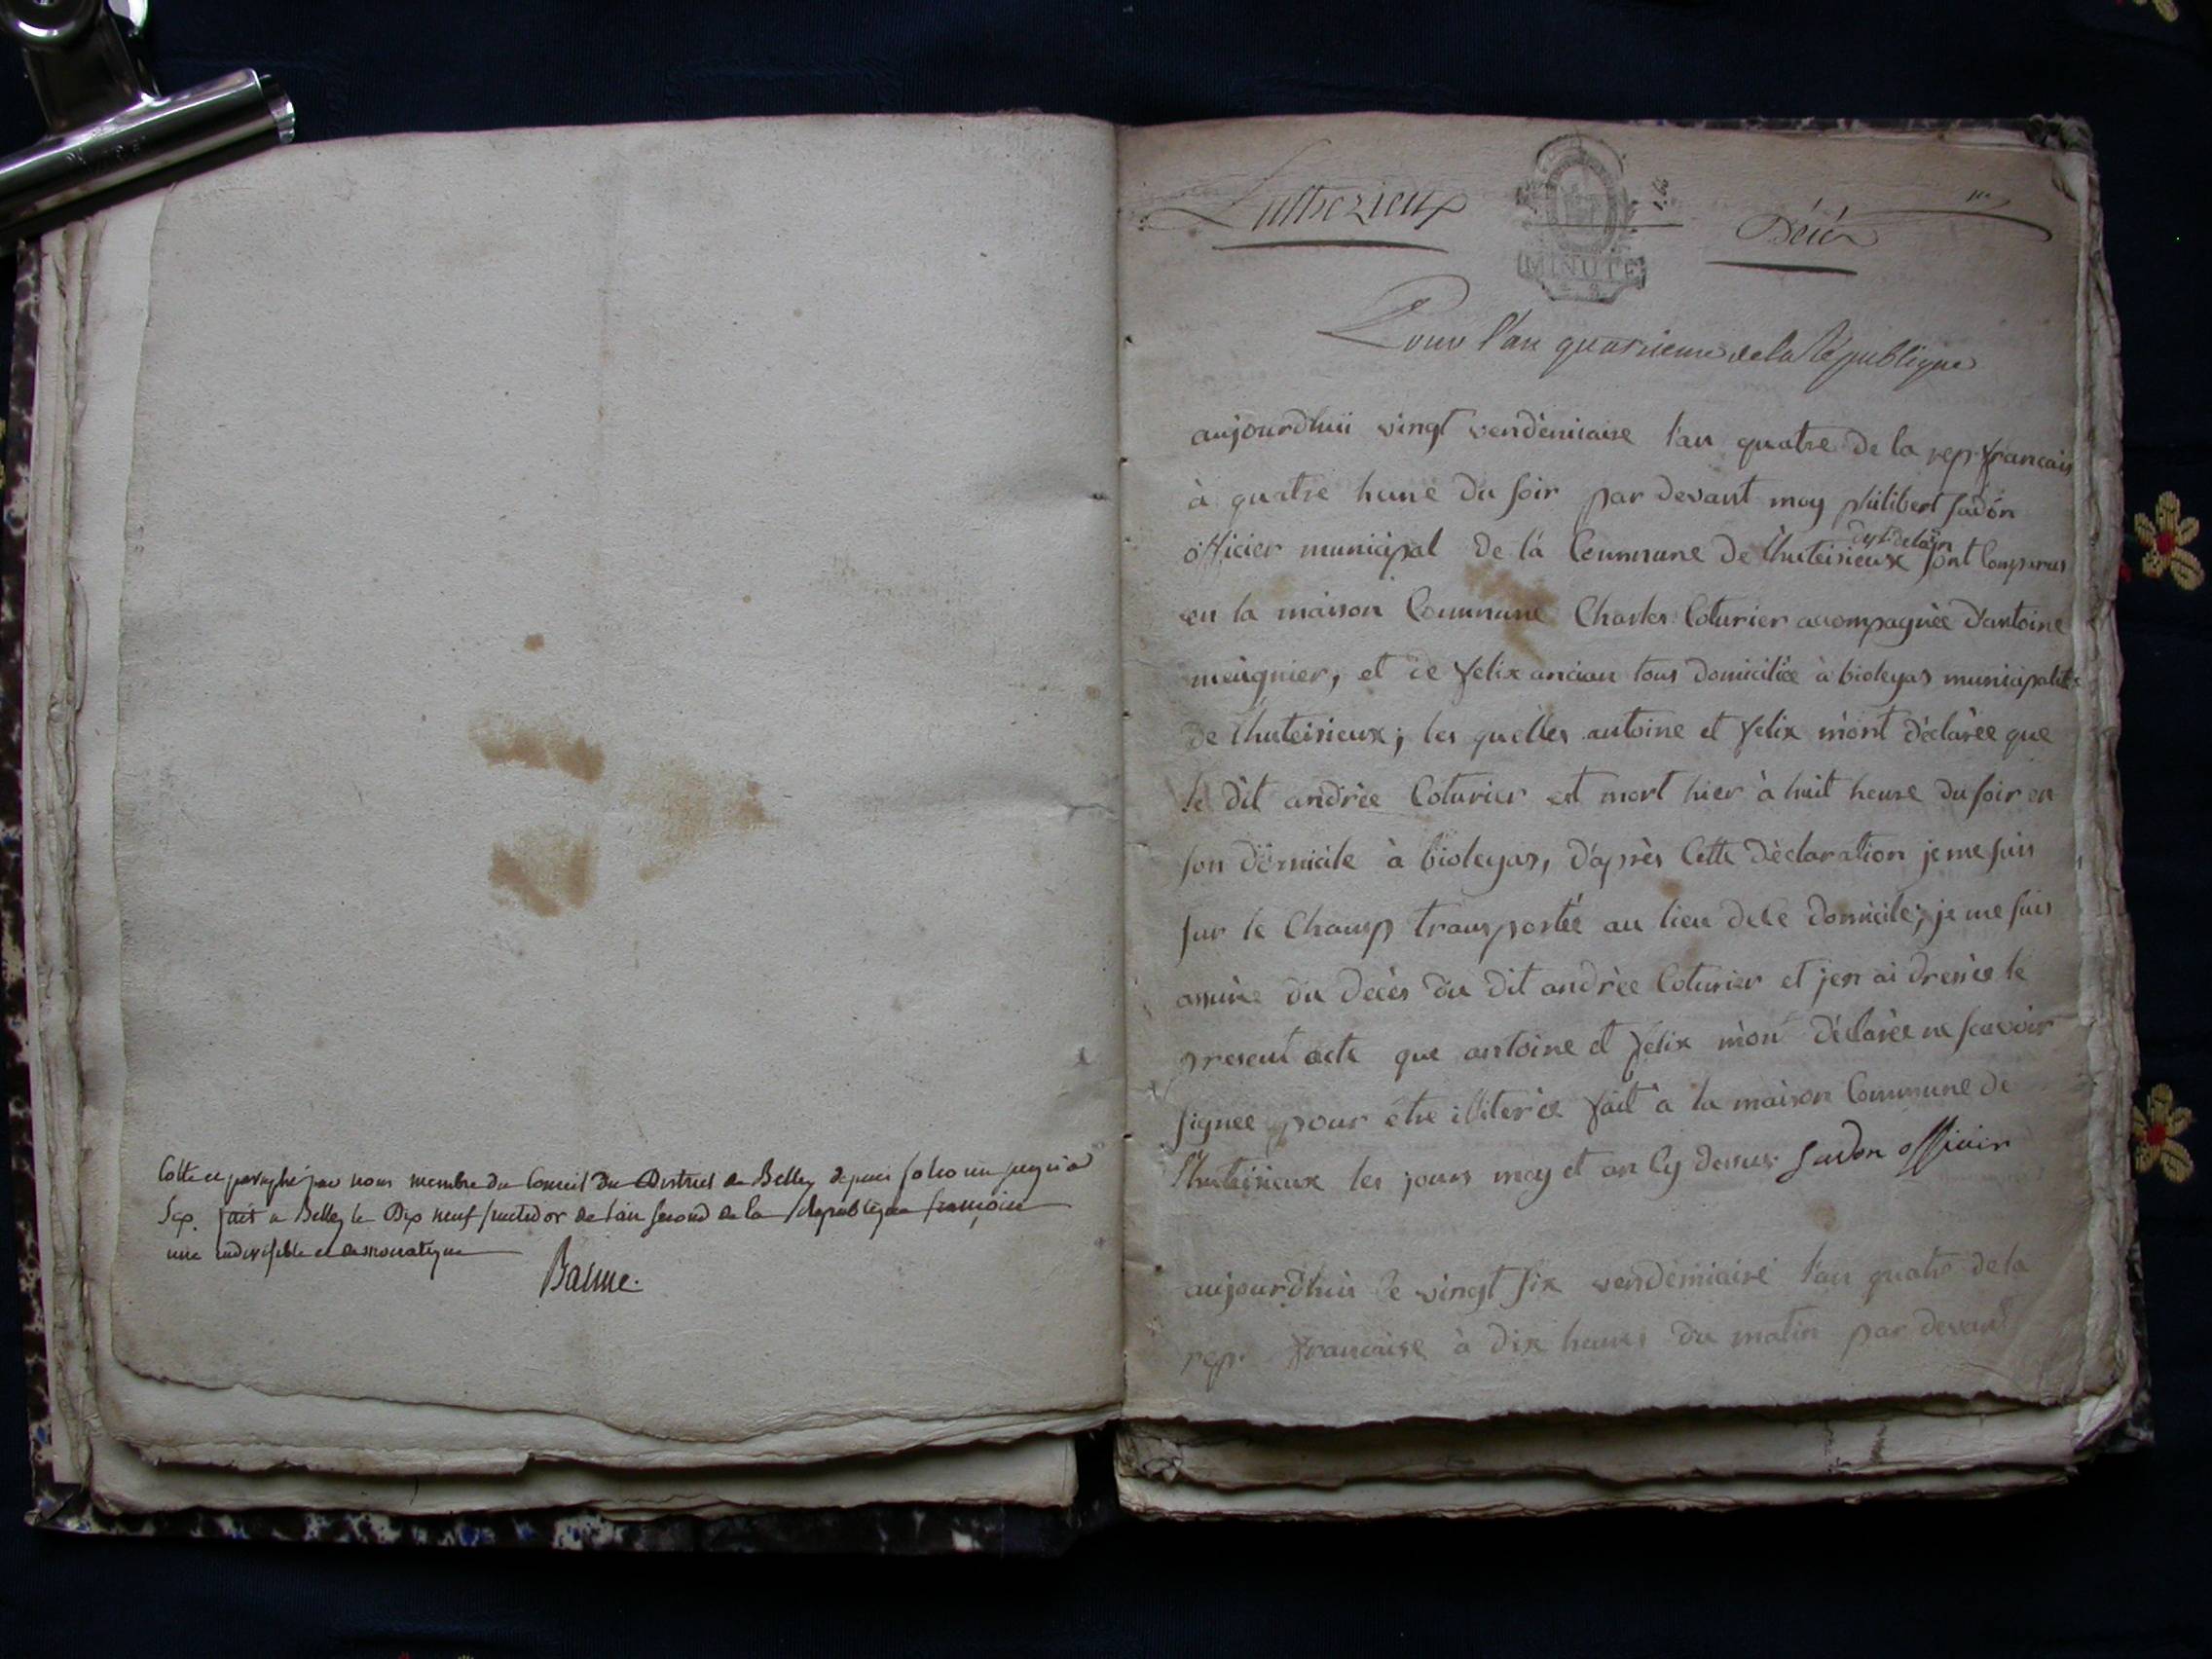 Cotté et paraphé par nous membre du Conseil du District de Belley depuis folio un jusqu'a
Six. fait a Belley le Dix neuf fructidor de l'an second de la Republique francoise
une indivisible et democratique
Baume.
Luthezieux
MINUTE
Décés
Pour l'an quatrieme de la République
aujourdhui vingt vendémiaire l'an quatre de la rep francais
à quatre heure du soir par devant moy philibert Savon
dept de lain
officier municipal de la Commune de Lhuteisieux sont Comparus
en la maison Commune Charles Coturier acompagnée d'antoine
meugnier, et de felix ancian tous domiciliée à bioleyas municipalité
de Lhuteisieux; les quelles antoine et felix m'ont déclarée que
le dit andrée Coturier est mort hier à huit heure du soir en
son domicile à bioleyas, d'après Cette déclaration je me suis
sur le Champ transportée au lieu de Ce domicile; je me suis
assurée du decés du dit andrée Coturier et jen ai dressée le
present acte que antoine et felix m'on déclarée ne scavoir
signee pour être illiterée fait a la maison Commune de
Lhuteisieux les jours moy et an Cy dessus Savon officier
aujourdhui le vingt six vendemiaire l'an quatre de la
rep. francaise à dix heures du matin par devant